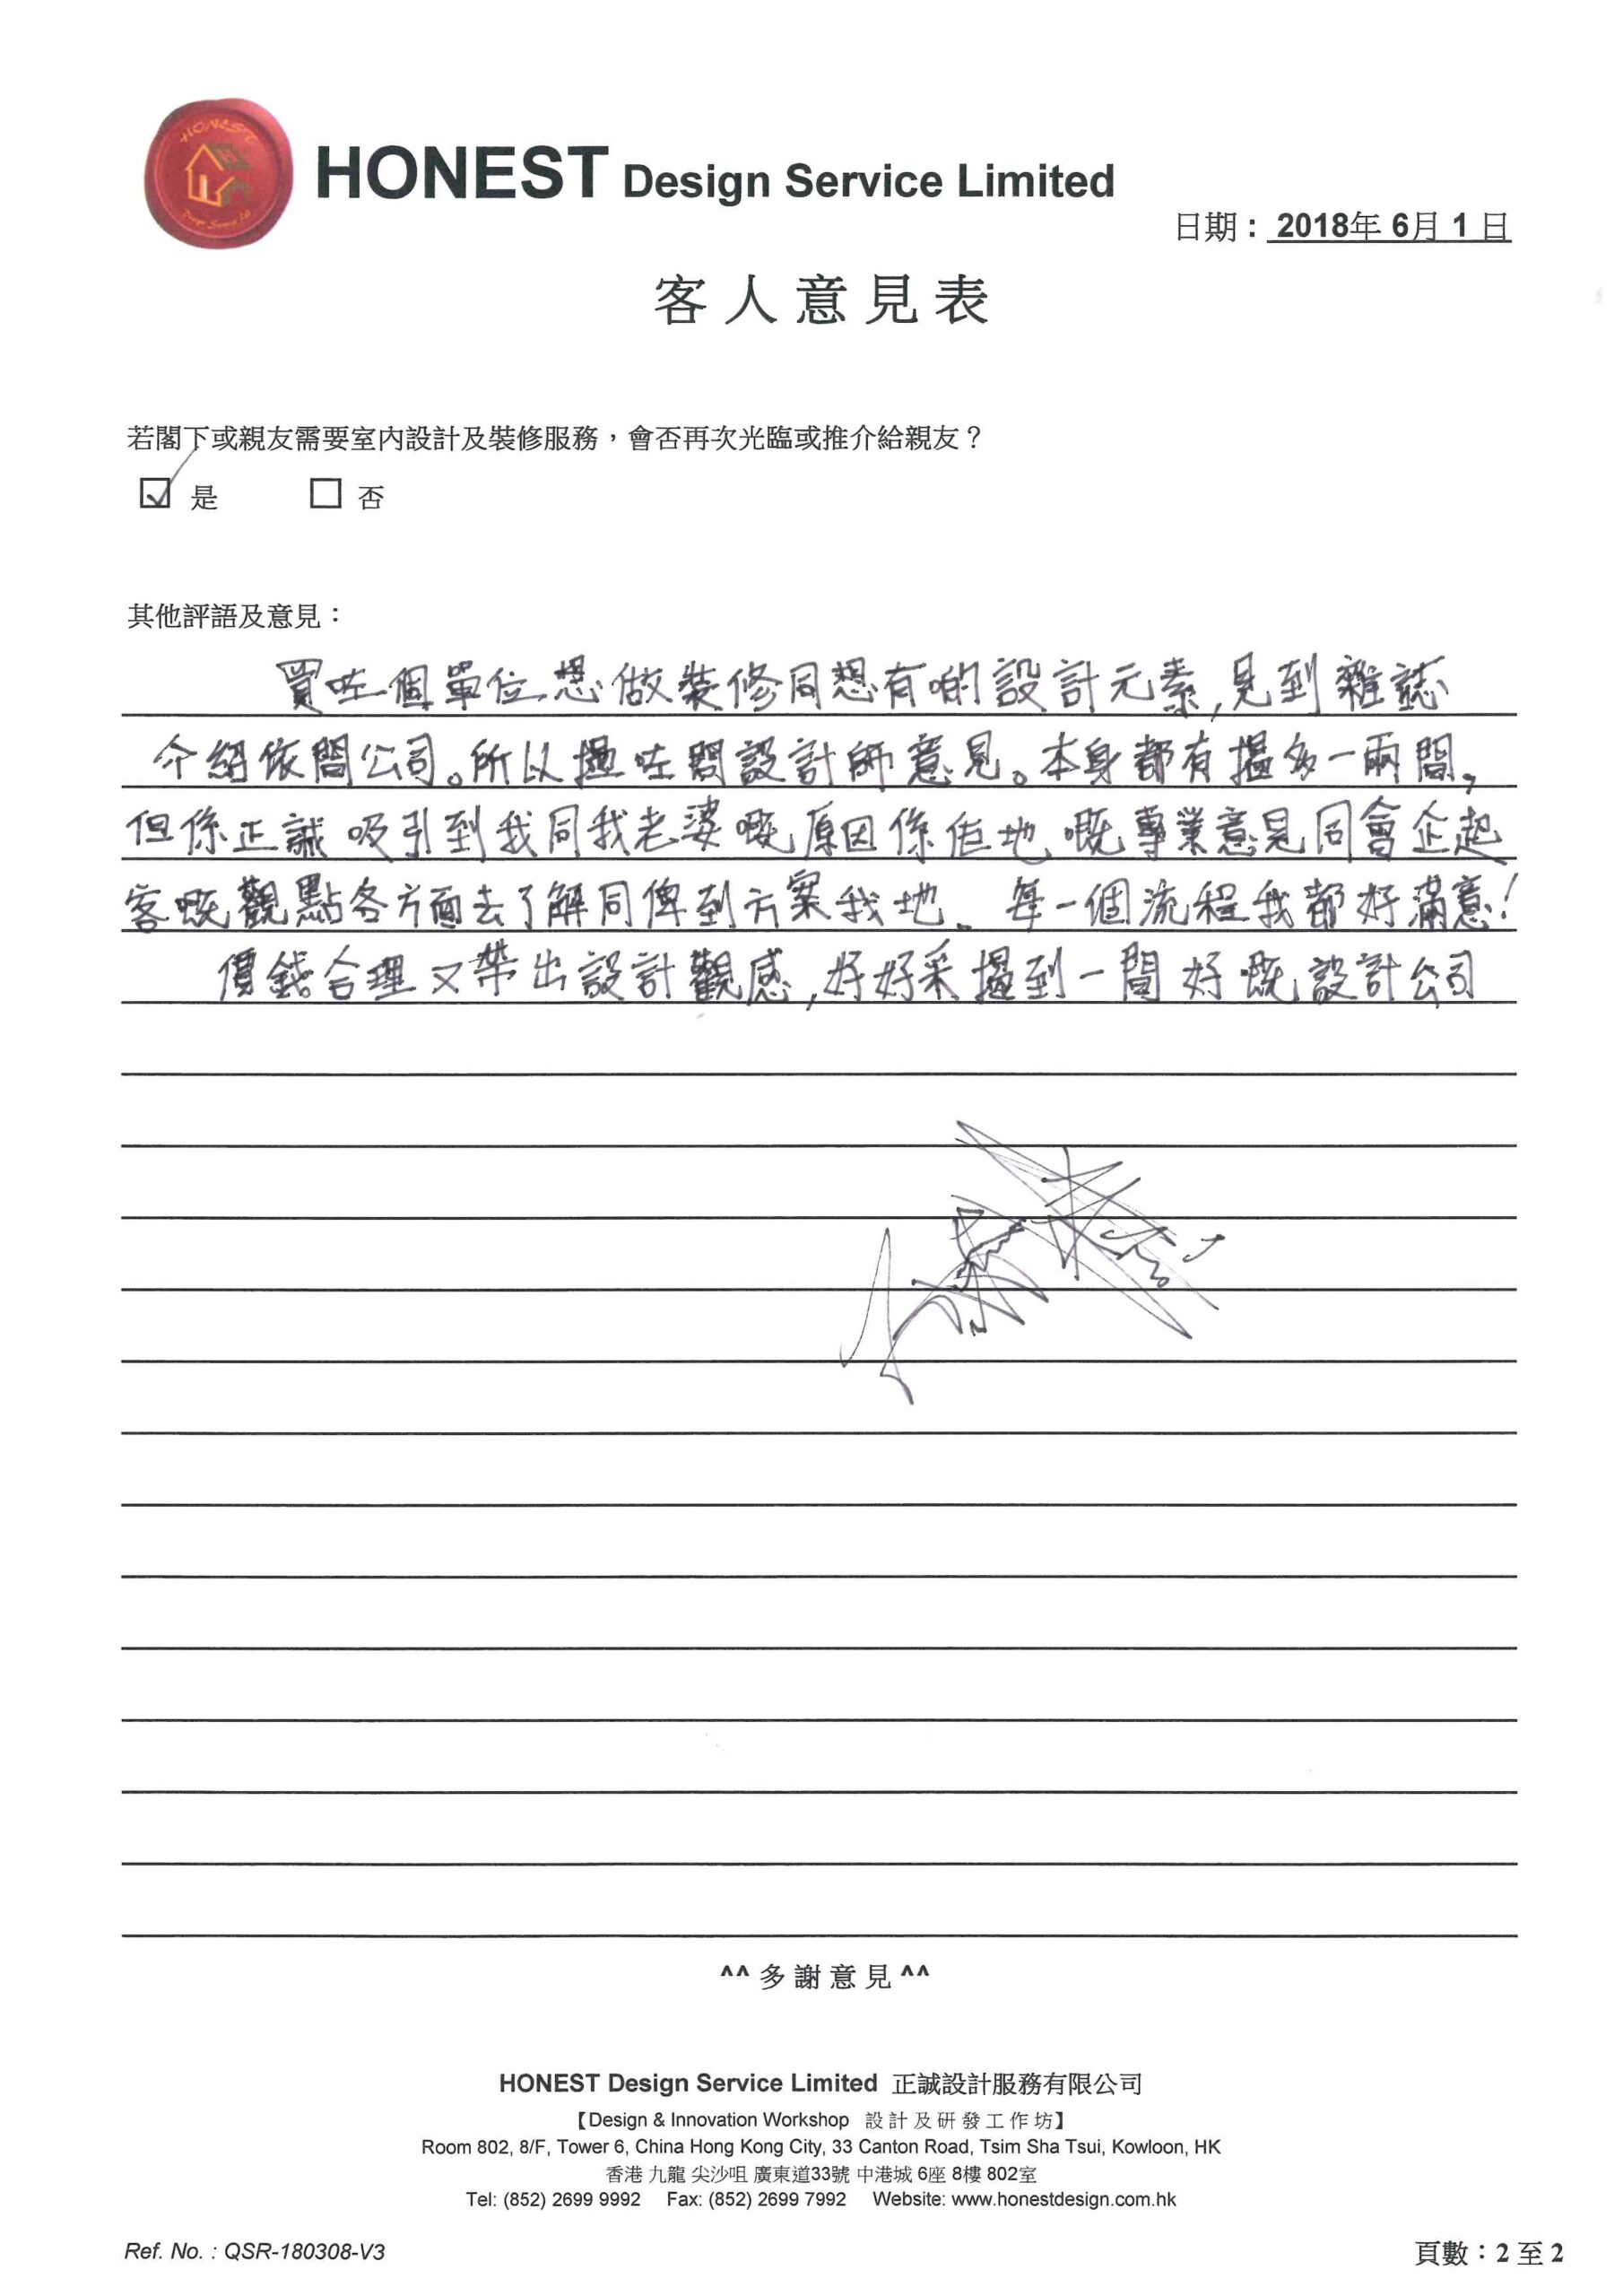 HONEST
HONEST Design Service Limited
日期：2018年 6月 1 日
客人意見表
若閣下或親友需要室內設計及裝修服務，會否再次光臨或推介給親友？
是 否
其他評語及意見：
買咗個單位想做裝修同想有啲設計元素,見到雜誌
介紹依間公司。所以搵咗間設計師意見。本身都有搵多一兩間,
但係正誠吸引到我同我老婆嘅原因係佢地嘅專業意見同會企起
客嘅觀點各方面去了解同俾到方案我地、每一個流程我都好滿意!
價錢合理又帶出設計觀感,好好采搵到一間好嘅設計公司
^^多謝意見^^
HONEST Design Service Limited 正誠設計服務有限公司
【Design & Innovation Workshop 設計及研發工作坊】
Room 802, 8/F, Tower 6, China Hong Kong City, 33 Canton Road, Tsim Sha Tsui, Kowloon, HK
香港 九龍 尖沙咀 廣東道33號 中港城 6座 8樓 802室
Tel: (852) 2699 9992 Fax: (852) 2699 7992 Website: www.honestdesign.com.hk
Ref. No. : QSR-180308-V3
頁數：2 至 2